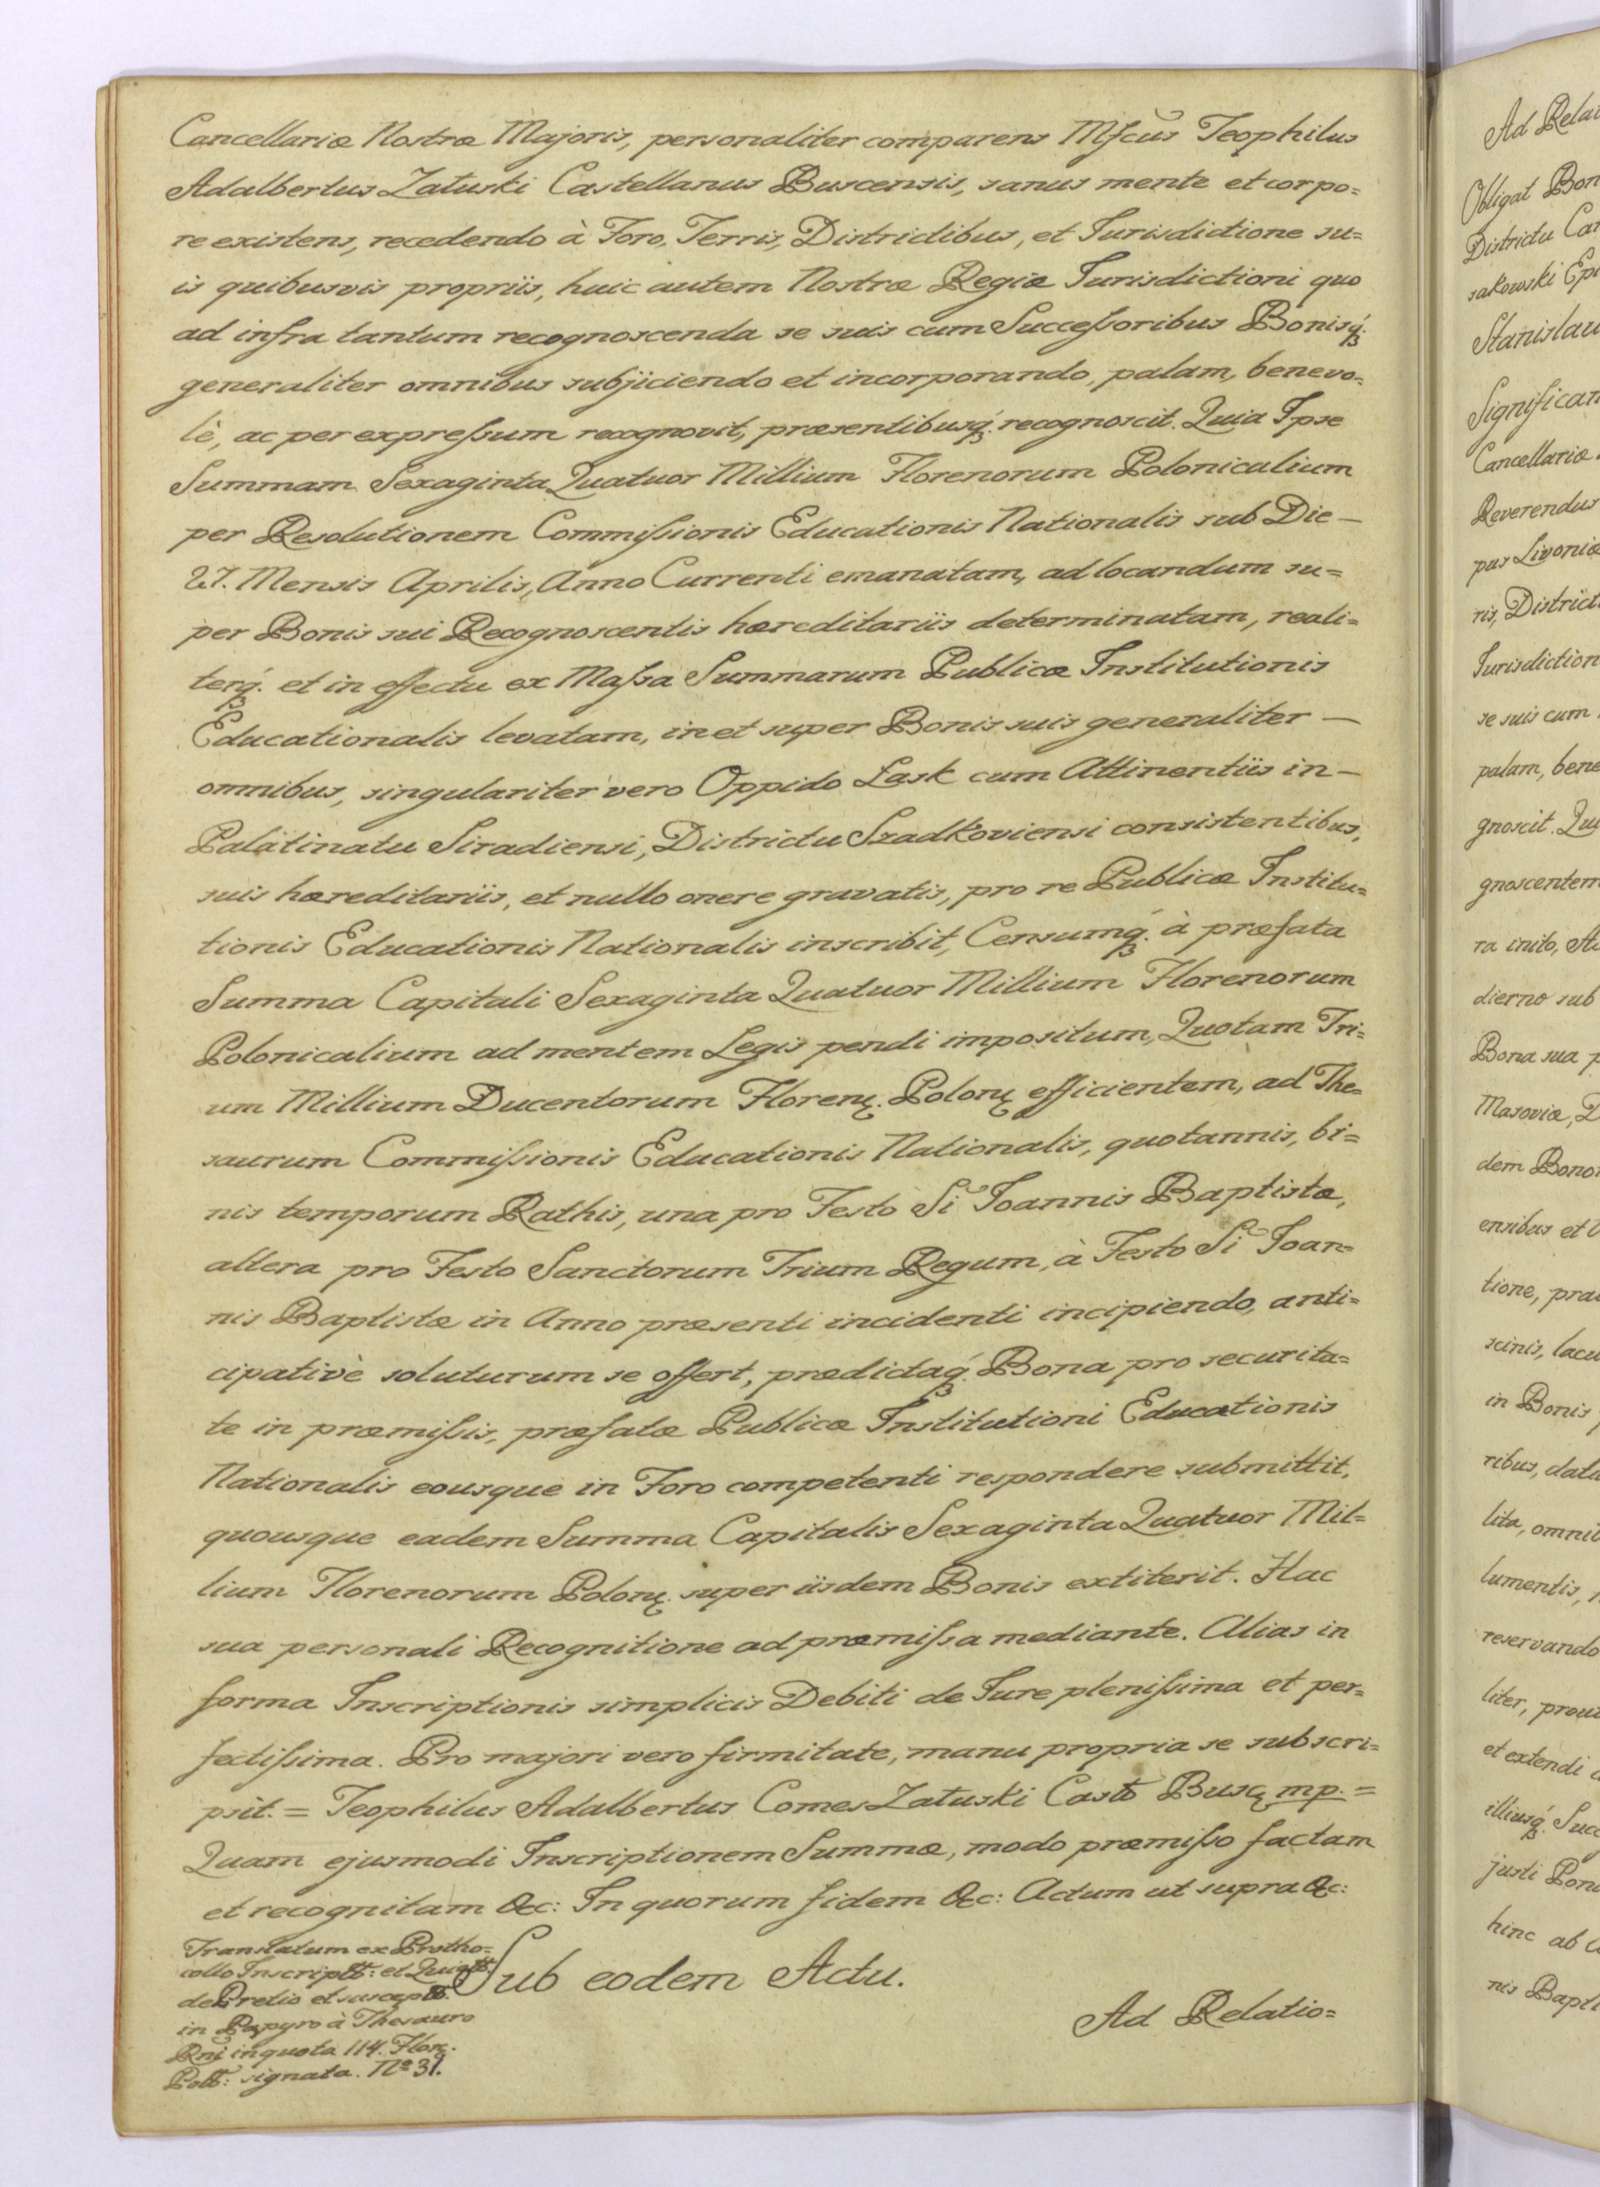 Cancellariæ Nostræ Majoris, personaliter comparens Mfcus Teophilus
Adalbertus Załuski Castellanus Buscensis, sanus mente et corpo=
re existens, recedendo à Foro, Terris, Districtibus, et Jurisdictione su=
is quibusvis propriis, huic autem Nostræ Regiæ Jurisdictioni quo
ad infra tantum recognoscenda se suis cum Successoribus Bonisq́.
generaliter omnibus subjiciendo et incorporando, palam, benevo=
lè, ac per expressum recognovit, præsentibusq́. recognoscit. Quia Ipse
Summam Sexaginta Quatuor Millium Florenorum Polonicalium
per Resolutionem Commissionis Educationis Nationalis sub Die —
27. Mensis Aprilis, Anno Currenti emanatam, ad locandum su=
per Bonis sui Recognoscentis hæreditariis determinatam, reali=
terq́. et in effectu ex Massa Summarum Publicæ Institutionis
Educationalis levatam, in et super Bonis suis generaliter —
omnibus, singulariter vero Oppido Łask cum Attinentiis in —
Palatinatu Siradiensi, Districtu Szadkoviensi consistentibus,
suis hæreditariis, et nullo onere gravatis, pro re Publicæ Institu=
tionis Educationis Nationalis inscribit, Censumq́. à præfata
Summa Capitali Sexaginta Quatuor Millium Florenorum
Polonicalium ad mentem Legis pendi impositum, Quotam Tri=
um Millium Ducentorum Florenꝝ. Polonꝝ efficientem, ad The=
saurum Commissionis Educationis Nationalis, quotannis, bi=
nis temporum Rathis, una pro Festo Si Joannis Baptistæ,
altera pro Festo Sanctorum Trium Regum, à Festo Si Joan=
nis Baptistæ in Anno præsenti incidenti incipiendo, anti=
cipativè soluturum se offert, prædictaq́. Bona pro securita=
te in præmissis, præfatæ Publicæ Institutioni Educationis
Nationalis eousque in Foro competenti respondere submittit,
quousque eadem Summa Capitalis Sexaginta Quatuor Mil=
lium Florenorum Polonꝝ. super iisdem Bonis extiterit. Hac
sua personali Recognitione ad præmissa mediante. Alias in
forma Inscriptionis simplicis Debiti de Jure plenissima et per=
fectissima. Pro majori vero firmitate, manu propria se subscri=
psit. = Teophilus Adalbertus Comes Załuski Castts Buscꝝ mp. =
Quam ejusmodi Inscriptionem Summæ, modo præmisso factam
et recognitam &c: In quorum fidem &c: Actum ut supra &c:
Translatum ex Protho=
collo Inscriptt: et Quiett.
de Pretio et suscept.
in Papyro à Thesauro
Rni in quota 114. Florꝝ.
Poltt: signata. No 31.
Sub eodem Actu.
Ad Relatio=
Ad Relat
Obligat Bon
Districtu Car
sakowski Epi
Stanislau
Significan
Cancellariæ
Reverendus
pus Livoniæ
ris, District
Jurisdiction
se suis cum
palam, bene
gnoscit. Qui
gnoscentem
ra inito, A
dierno sub
Bona sua p
Masoviæ, D
dem Bono
ensibus et
tione, præ
scinis, lacu
in Bonis
ribus, datu
lita, omni
lumentis,
reservando
liter, prou
et extendi
illiusq́. Suc
justi Pon
hinc ab
nis Bapt